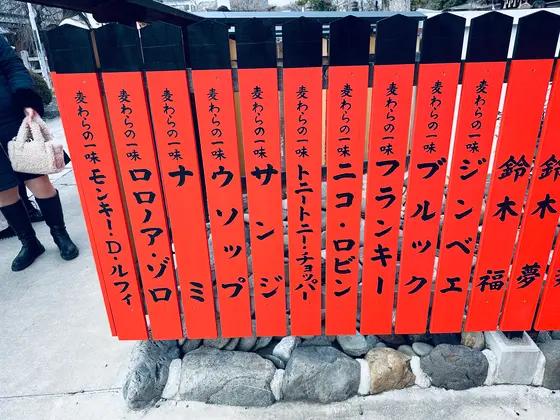 麦わらの一味 モンキー・D・ルフィ
麦わらの一味 ロロノア・ゾロ
麦わらの一味 ナミ
麦わらの一味 ウソップ
麦わらの一味 サンジ
麦わらの一味 トニートニー・チョッパー
麦わらの一味 ニコ・ロビン
麦わらの一味 フランキー
麦わらの一味 ブルック
麦わらの一味 ジンベエ
鈴木 福
鈴木 夢